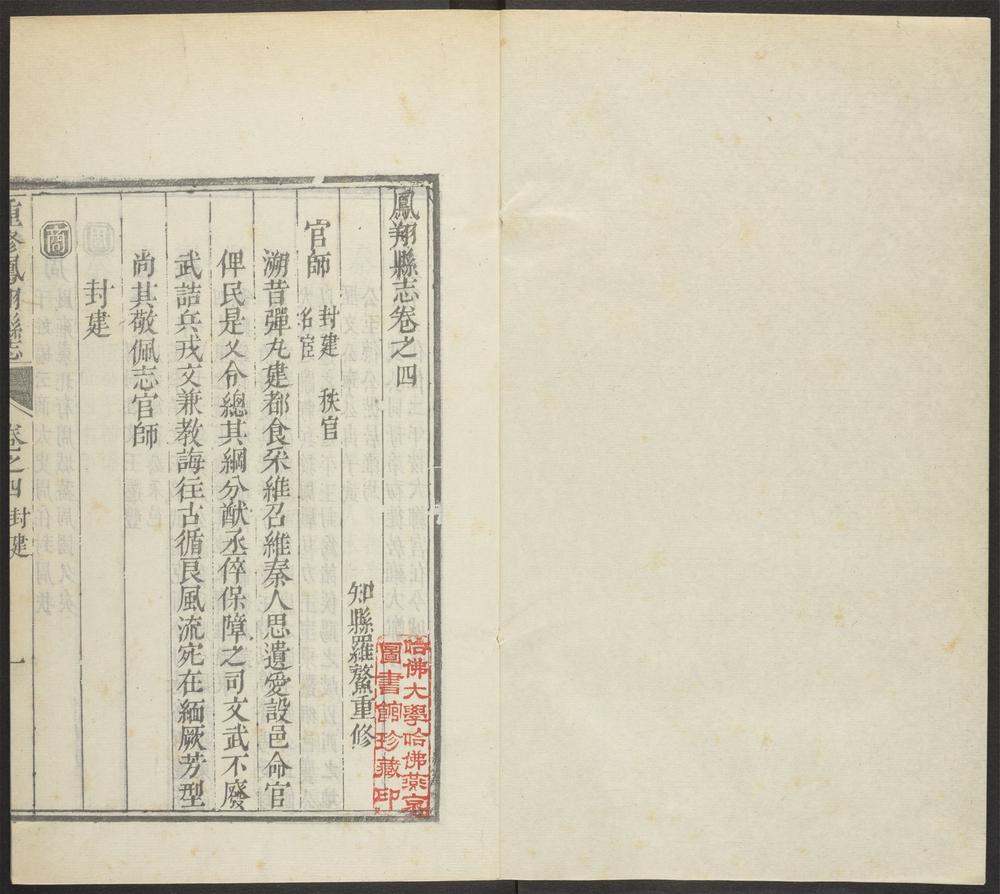 鳳翔縣志卷之四
知縣羅鰲重修
官師
封建　秩官
名宦
溯昔彈丸建都食采維召維秦人思遺愛設邑命官
俾民是乂令總其綱分猷丞倅保障之司文武不廢
武詰兵戎文兼教誨往古循良風流宛在緬厥芳型
尚其敬佩志官師
封建
商
重修鳳翔縣志
卷之四
封建
一
哈佛大學哈佛燕京
圖書館珍藏印